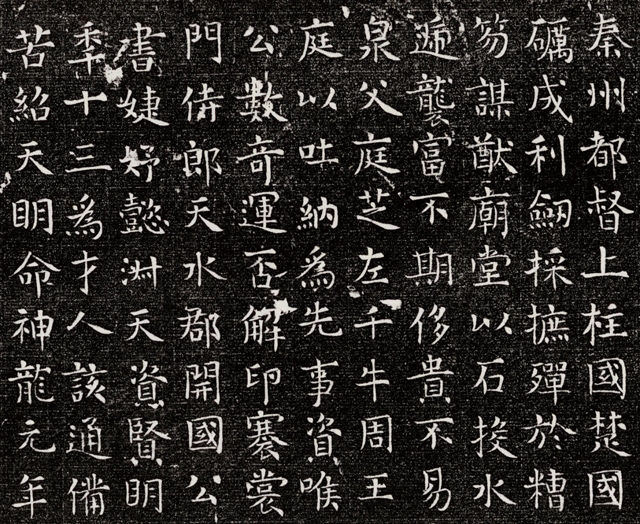 秦州都督上柱國楚國
礪成利劒採摭殫於糟
笏謀猷廟堂以石投水
遞襲富不期侈貴不易
泉父庭芝左千牛周王
庭以吐納爲先事資喉
公數奇運否解印褰裳
門侍郎天水郡開國公
書婕妤懿淑天資賢明
秊十三爲才人該通備
苦紹天明命神龍元年